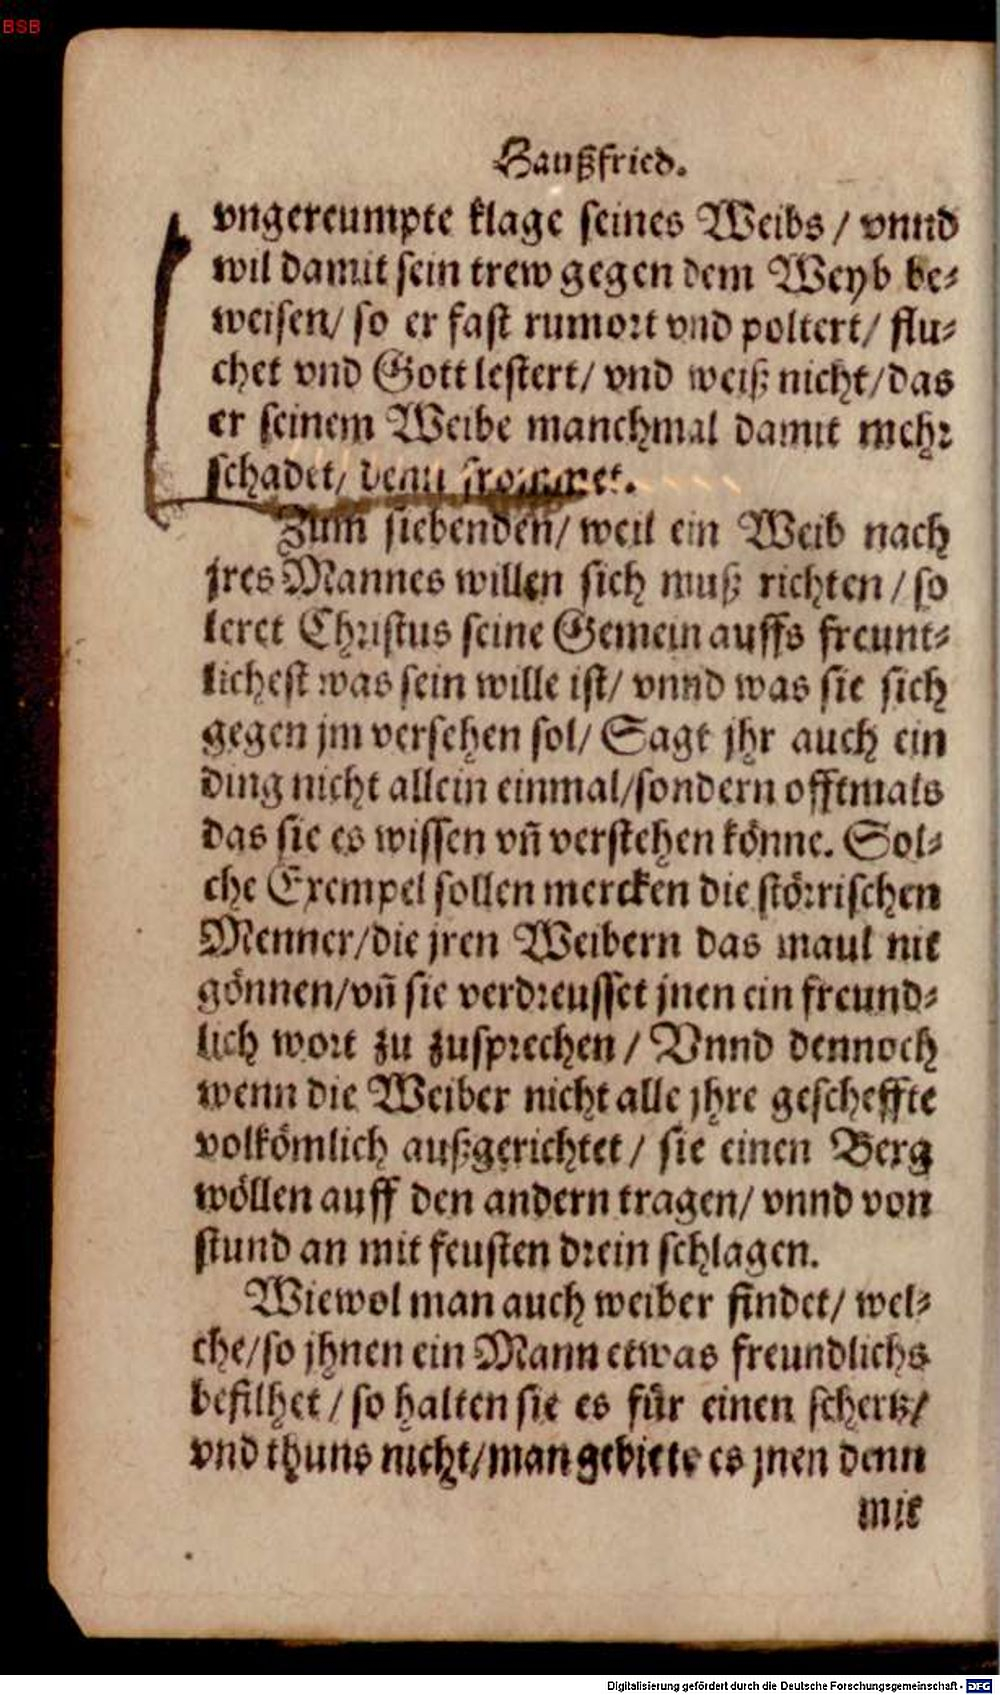 BSB
Haußfried.
vngereumpte klage seines Weibs / vnnd
wil damit sein trew gegen dem Weyb be⸗
weisen/ so er fast rumort vnd poltert/ flu⸗
chet vnd Gott lestert/ vnd weiß nicht/das
er seinem Weibe manchmal damit mehr
schadet/ denn frommet.
Zum siebenden/ weil ein Weib nach
jres Mannes willen sich muß richten / so
leret Christus seine Gemein auffs freunt⸗
lichest was sein wille ist/ vnnd was sie sich
gegen jm versehen sol/ Sagt jhr auch ein
ding nicht allein einmal/sondern offtmals
das sie es wissen vñ verstehen könne. Sol⸗
che Exempel sollen mercken die störrischen
Menner/die jren Weibern das maul nit
gönnen/vñ sie verdreusset jnen ein freund⸗
lich wort zu zusprechen / Vnnd dennoch
wenn die Weiber nicht alle jhre gescheffte
volkömlich außgerichtet / sie einen Berg
wöllen auff den andern tragen/ vnnd von
stund an mit feusten drein schlagen.
Wiewol man auch weiber findet/ wel⸗
che/so jhnen ein Mann etwas freundlichs
befilhet / so halten sie es für einen schertz/
vnd thuns nicht/man gebiete es jnen denn
mit
Digitalisierung gefördert durch die Deutsche Forschungsgemeinschaft - DFG